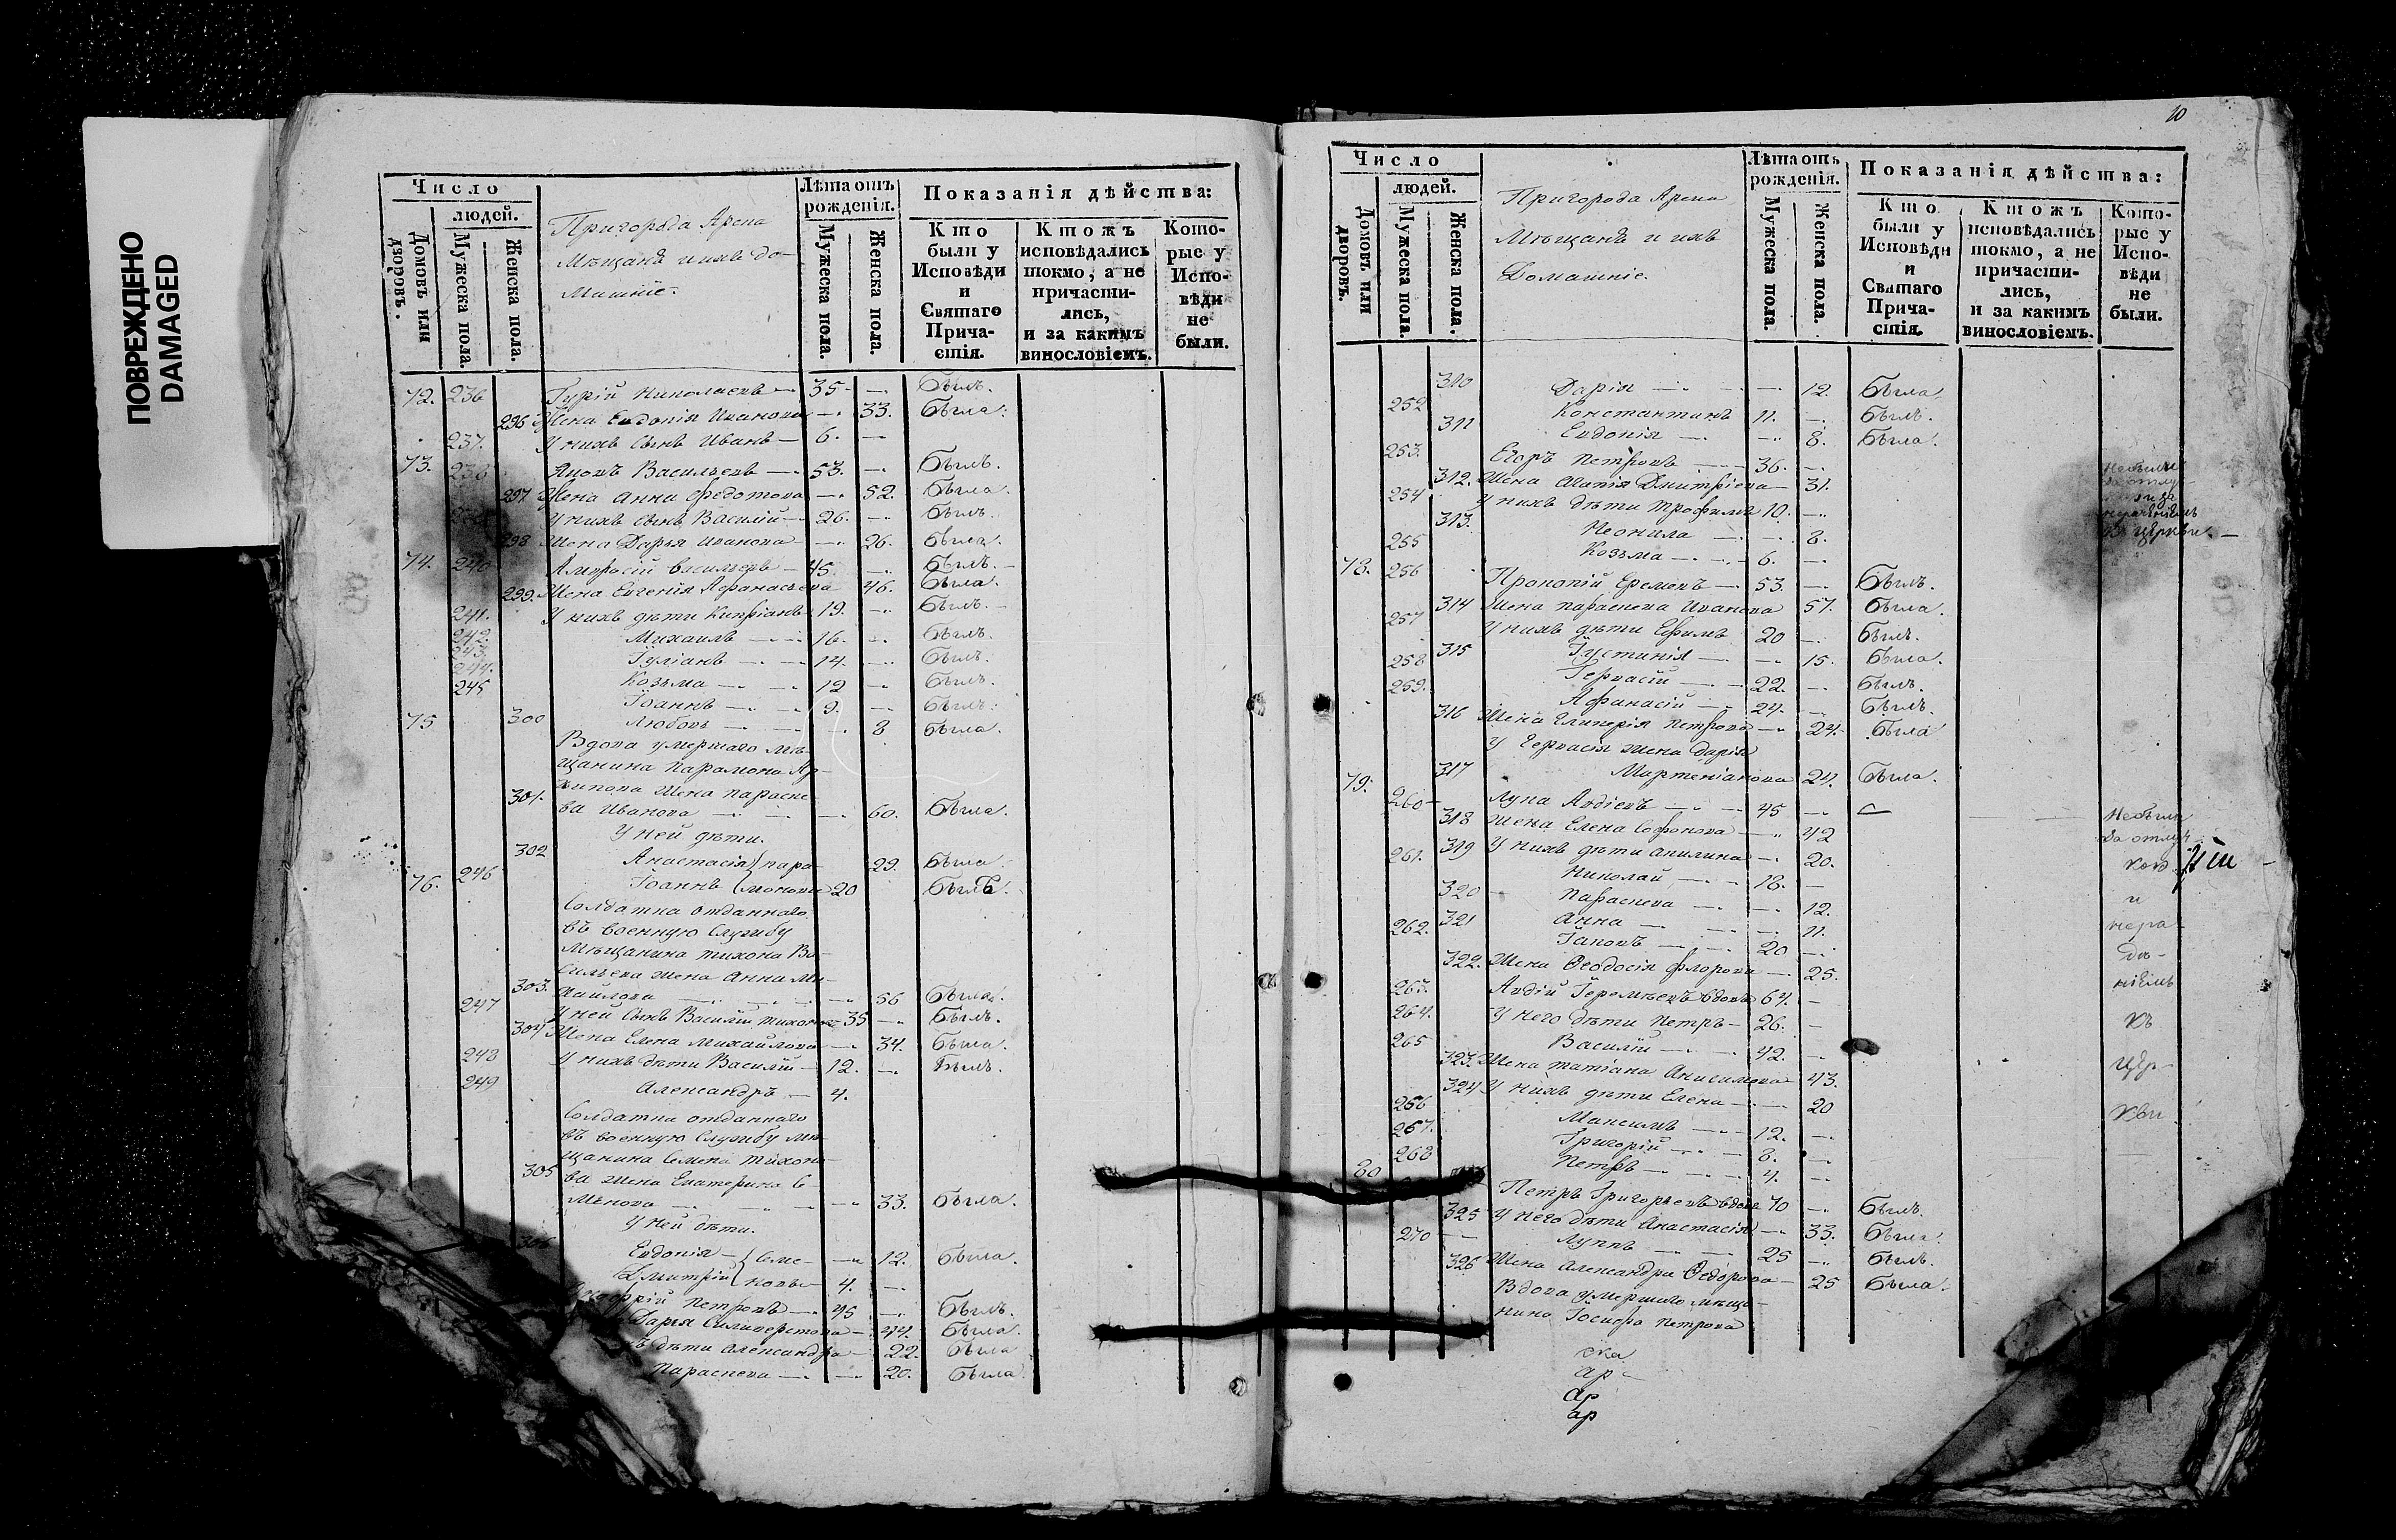 ПОВРЕЖДЕНО
DAMAGED
Число
людей.
Домовъ или дворовъ.
Мужеска пола.
Женска пола.
Пригорода Арска
Мѣщанъ и ихъ до-
машніе.
Лѣта отъ рожденія.
Мужеска пола.
Женска пола.
Показанія дѣйства:
Кто были у Исповѣди и Святаго Прича-стія.
Ктожъ исповѣдались токмо, а не причасти-лись, и за какимъ винословіемъ.
Кото-рые у Испо-вѣди не были.
72. 236 Гурій Николаевъ — 35. — Былъ.
296 Жена Евдокія Иванова — 33. Была.
237. У нихъ сынъ Иванъ — 6. —
73. 238 Яковъ Васильевъ — 53. — Былъ.
297 Жена Анна Федотова — 52. Была.
У нихъ сынъ Василій — 26. — Былъ.
298 Жена Дарья Иванова — 26. Была.
74. 240 Амвросій Васильевъ — 45. — Былъ.
299. Жена Евгенія Афанасьева 46. Была.
241. У нихъ дѣти Кипріанъ 19. — Былъ.
242. Михаилъ — 16. — Былъ.
243. Іуліанъ — 14. — Былъ.
244. Козьма — 12 — Былъ.
245 Іоаннъ — 9. — Былъ.
75 300 Любовь — 8 Была.
Вдова умершаго мѣ-
щанина Парамона Ар-
хипова жена Параске-
301. ва Иванова — 60. Была.
У ней дѣти.
302 Анастасія } Пара- 29. Была
76. 246 Іоаннъ } моновы 20 Былъ.
Солдатка отданнаго
въ военную службу
мѣщанина Тихона Ва-
сильева жена Анна Ми-
303. хайлова — 56 Была.
247 У ней сынъ Василій Тихоновъ 35 — Былъ.
304 Жена Елена Михайлова — 34. Была.
248 У нихъ дѣти Василій — 12. — Былъ.
249 Александръ — 4.
Солдатка отданнаго
въ военную службу мѣ-
щанина Семена Тихоно-
305 ва жена Екатерина Се-
мѣнова — 33. Была.
У ней дѣти.
306 Евдокія — } Семе- — 12. Была.
Дмитрій } новы — 4. —
Петровъ — 45 — Былъ.
Дарья Силиверстова — 44. Была.
дѣти Александра — 22. Была
Параскева — 20. Была.
10
Число
людей.
Домовъ или дворовъ.
Мужеска пола.
Женска пола.
Пригорода Арска
Мѣщанъ и ихъ
Домашніе.
Лѣта отъ рожденія.
Мужеска пола.
Женска пола.
Показанія дѣйства:
Кто были у Исповѣди и Святаго Прича-стія.
Ктожъ исповѣдались токмо, а не причасти-лись, и за какимъ винословіемъ.
Кото-рые у Испо-вѣди не были.
310 Дарія — 12. Была.
252 Константинъ 11. — Былъ.
311 Евдокія — 8. Была.
253. Егоръ Петровъ — 36. — Небыли
312. Жена Агапія Дмитріева — 31. за отлуч-
254 У нихъ дѣти Трофимъ 10. —
313. Неонила — 8. нерадѣніемъ
255 Козьма — 6. — къ церкви. —
78. 256 Прокопій Еремеевъ — 53. — Былъ.
314 Жена Параскева Иванова 51. Была.
257 У нихъ дѣти Ефимъ 20 — Былъ.
315 Іустинія — 15. Была.
258 Гервасій — 22. — Былъ.
259. Афанасій — 24. — Былъ.
316 Жена Гликерія Петрова — 24. Была
У Гервасія жена Дарія
317 Мартеніанова 24. Была.
79. 260 Лупа Авдіевъ — 45 — Небыли
318 Жена Елена Софонова — 42 за отлуч-
261. 319 У нихъ дѣти Акилина — 20. кою
Николай — 18. — и
320 Параскева — 12. нера-
321 Анна — 11. дѣ-
262. Іаковъ — 20 — ніемъ
322. Жена Ѳеодосія Флорова — 25. къ
263. Авдій Іеремѣевъ вдовъ 64. — цер-
264. У него дѣти Петръ — 26. — кви
265 Василій — 42. —
323. Жена Татіана Анисимова — 43.
324 У нихъ дѣти Елена — 20
266 Максимъ — 12. —
267. Григорій — 8. —
268 Петръ — 4. —
80 Петръ Григорьевъ вдовъ 70 — Былъ.
325 У него дѣти Анастасія — 33. Была.
270 Луппъ — 25 — Былъ.
326 Жена Александра Ѳедорова — 25 Была.
Вдова умершаго мѣща-
нина Іосифа Петрова
ска
ар
Ар
ар